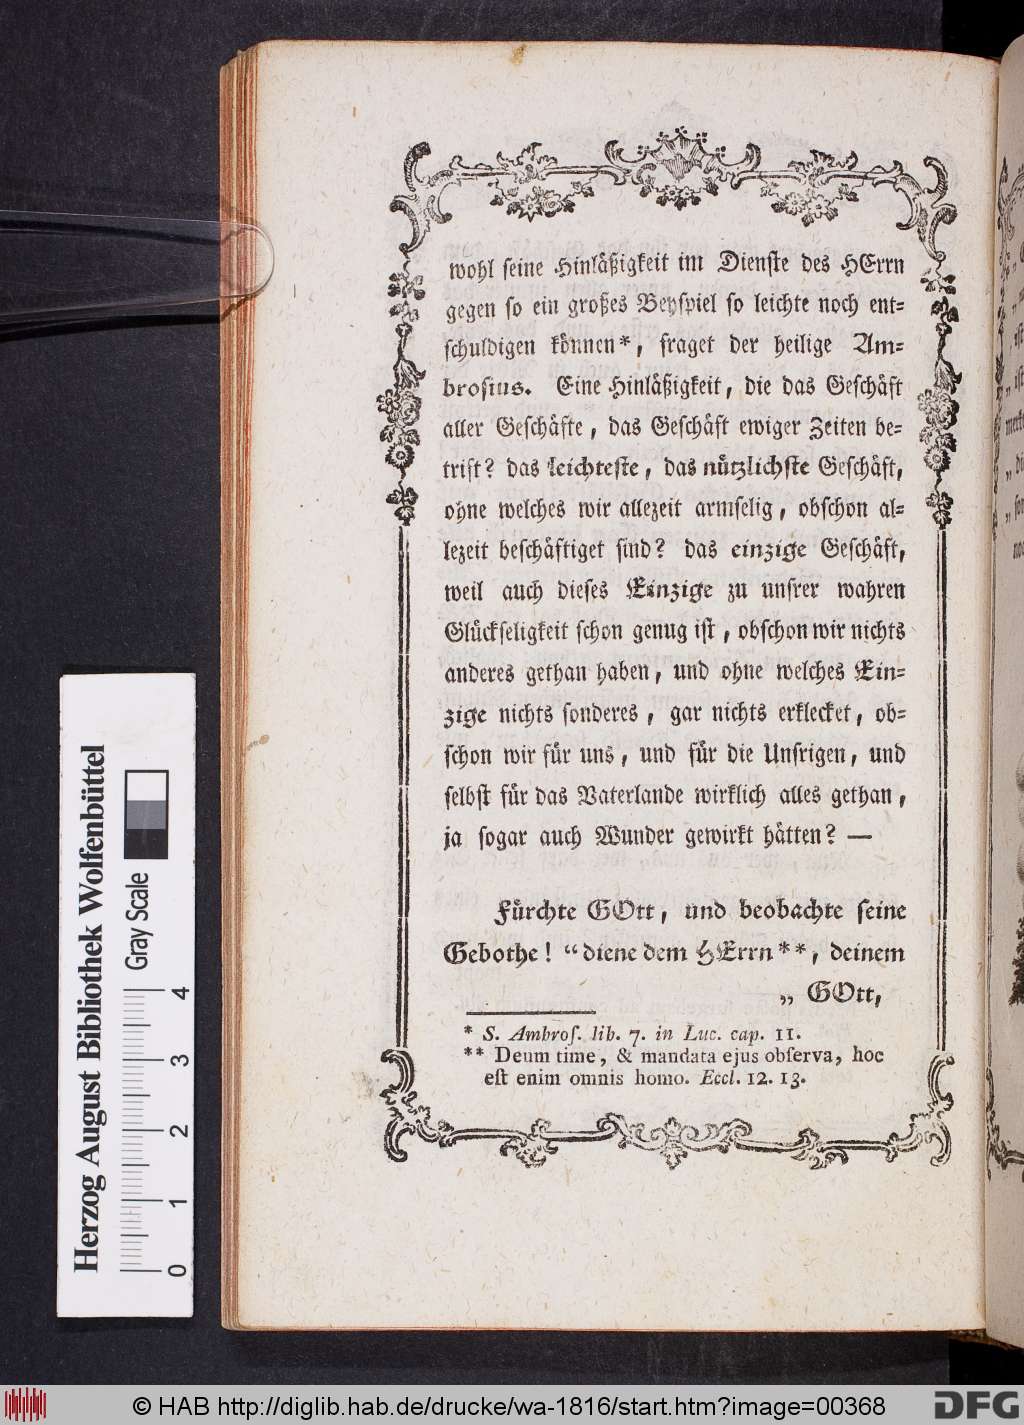 wohl seine Hinläßigkeit im Dienste des HErrn
gegen so ein großes Beyspiel so leichte noch ent=
schuldigen können*, fraget der heilige Am=
brosius. Eine Hinläßigkeit, die das Geschäft
aller Geschäfte, das Geschäft ewiger Zeiten be=
trift? das leichteste, das nützlichste Geschäft,
ohne welches wir allezeit armselig, obschon al=
lezeit beschäftiget sind? das einzige Geschäft,
weil auch dieses Einzige zu unsrer wahren
Glückseligkeit schon genug ist, obschon wir nichts
anderes gethan haben, und ohne welches Ein=
zige nichts sonderes, gar nichts erklecket, ob=
schon wir für uns, und für die Unsrigen, und
selbst für das Vaterlande wirklich alles gethan,
ja sogar auch Wunder gewirkt hätten? —
Fürchte GOtt, und beobachte seine
Gebothe! “diene dem HErrn**, deinem
„ GOtt,
* S. Ambroſ. lib. 7. in Luc. cap. 11.
** Deum time, & mandata ejus obſerva, hoc
eſt enim omnis homo. Eccl. 12. 13.
Herzog August Bibliothek Wolfenbüttel
Gray Scale
0 1 2 3 4
© HAB http://diglib.hab.de/drucke/wa-1816/start.htm?image=00368
DFG